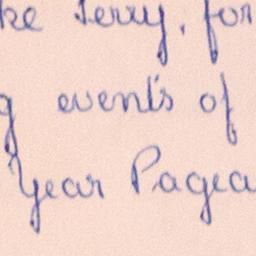 ke Terry, for
g event's of
Year Pagea